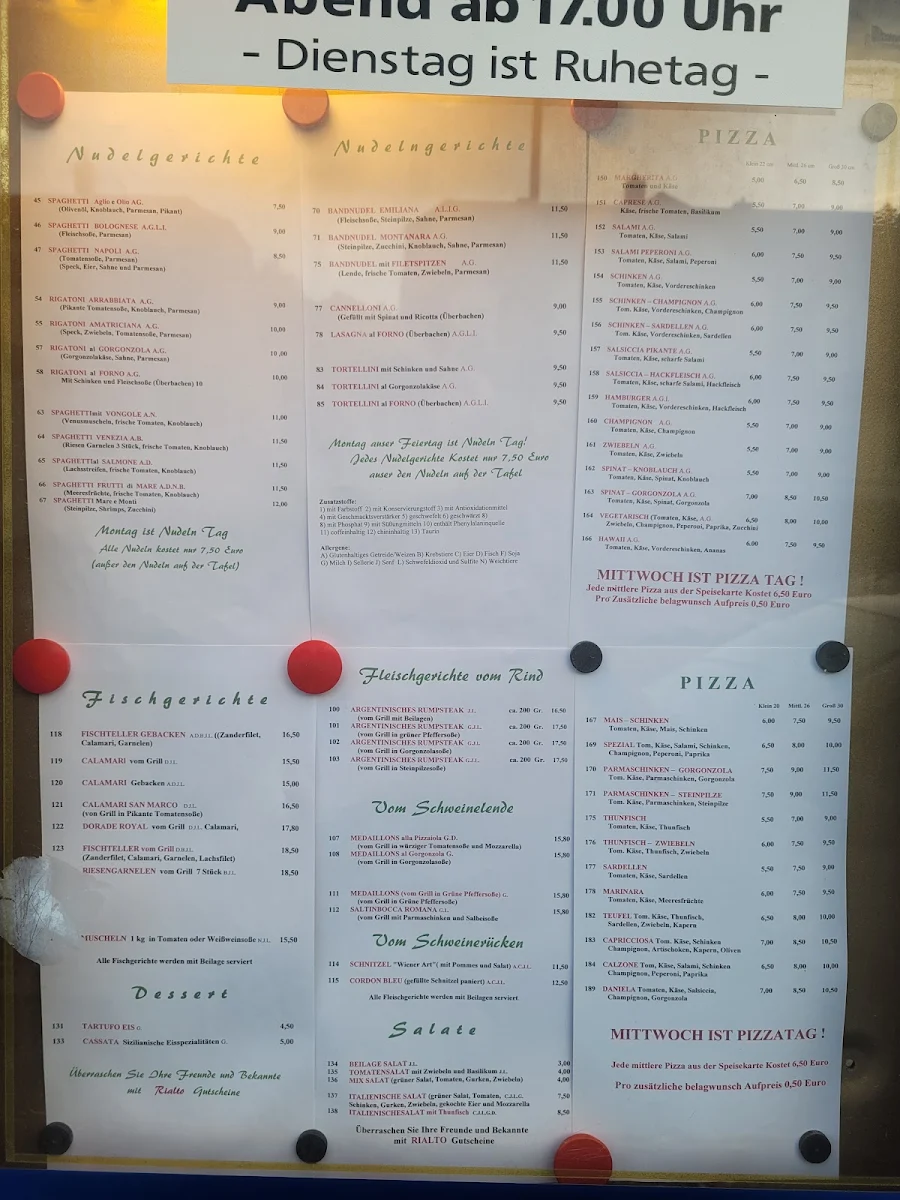 Abend ab 17.00 Uhr
- Dienstag ist Ruhetag -
Nudelgerichte
45 SPAGHETTI Aglio e Olio AG. 7,50
(Olivenöl, Knoblauch, Parmesan, Pikant)
46 SPAGHETTI BOLOGNESE A.G.L.I. 9,00
(Fleischsoße, Parmesan)
47 SPAGHETTI NAPOLI A.G. 8,50
(Tomatensoße, Parmesan)
(Speck, Eier, Sahne und Parmesan)
54 RIGATONI ARRABBIATA A.G. 9,00
(Pikante Tomatensoße, Knoblauch, Parmesan)
55 RIGATONI AMATRICIANA A.G. 10,00
(Speck, Zwiebeln, Tomatensoße, Parmesan)
57 RIGATONI al GORGONZOLA A.G. 10 ,00
(Gorgonzolakäse, Sahne, Parmesan)
58 RIGATONI al FORNO A.G. 10,00
Mit Schinken und Fleischsoße (Überbachen) 10
63 SPAGHETTImit VONGOLE A.N. 11,00
(Venusmuscheln, frische Tomaten, Knoblauch)
64 SPAGHETTI VENEZIA A.B. 11,50
(Riesen Garnelen 3 Stück, frische Tomaten, Knoblauch)
65 SPAGHETTIal SALMONE A.D. 11,50
(Lachsstreifen, frische Tomaten, Knoblauch)
66 SPAGHETTI FRUTTI di MARE A.D.N.B. 11,50
(Meeresfrüchte, frische Tomaten, Knoblauch)
67 SPAGHETTI Mare e Monti 12,00
(Steinpilze, Shrimps, Zucchini)
Montag ist Nudeln Tag
Alle Nudeln kostet nur 7,50 Euro
(außer den Nudeln auf der Tafel)
Nudelngerichte
70 BANDNUDEL EMILIANA A.L.I.G. 11,50
(Fleischsoße, Steinpilze, Sahne, Parmesan)
71 BANDNUDEL MONTANARA A.G. 11,50
(Steinpilze, Zucchini, Knoblauch, Sahne, Parmesan)
75 BANDNUDEL mit FILETSPITZEN A.G. 11,50
(Lende, frische Tomaten, Zwiebeln, Parmesan)
77 CANNELLONI A.G. 9,00
(Gefüllt mit Spinat und Ricotta (Überbachen)
78 LASAGNA al FORNO (Überbachen) A.G.L.I. 9,50
83 TORTELLINI mit Schinken und Sahne A.G. 9,50
84 TORTELLINI al Gorgonzolakäse A.G. 9,50
85 TORTELLINI al FORNO (Überbachen) A.G.L.I. 9,50
Montag auser Feiertag ist Nudeln Tag!
Jedes Nudelgerichte Kostet nur 7,50 Euro
auser den Nudeln auf der Tafel
Zusatzstoffe:
1) mit Farbstoff 2) mit Konservierungstoff 3) mit Antioxidationmittel
4) mit Geschmacksverstärker 5) geschwefelt 6) geschwärzt 8)
8) mit Phosphat 9) mit Süßungmitteln 10) enthält Phenylalaninquelle
11) coffeinhaltig 12) chininhaltig 13) Taurin
Allergene:
A) Glutenhaltiges Getreide/Weizen B) Krebstiere C) Eier D) Fisch F) Soja
G) Milch I) Sellerie J) Senf L) Schwefeldioxid und Sulfite N) Weichtiere
PIZZA
Klein 21 cm Mittl. 26 cm Groß 30 cm
150 MARGUERITA A.G. 5,00 6,50 8,50
Tomaten und Käse
151 CAPRESE A.G. 5,50 7,00 9,00
Käse, frische Tomaten, Basilikum
152 SALAMI A.G. 5,50 7,00 9,00
Tomaten, Käse, Salami
153 SALAMI PEPERONI A.G. 6,00 7,50 9,50
Tomaten, Käse, Salami, Peperoni
154 SCHINKEN A.G. 5,50 7,00 9,00
Tomaten, Käse, Vordereschinken
155 SCHINKEN – CHAMPIGNON A.G. 6,00 7,50 9,50
Tom. Käse, Vordereschinken, Champignon
156 SCHINKEN – SARDELLEN A.G. 6,00 7,50 9,50
Tom. Käse, Vordereschinken, Sardellen
157 SALSICCIA PIKANTE A.G. 5,50 7,00 9,00
Tomaten, Käse, scharfe Salami
158 SALSICCIA – HACKFLEISCH A.G. 6,00 7,50 9,50
Tomaten, Käse, scharfe Salami, Hackfleisch
159 HAMBURGER A.G.I. 6,00 7,50 9,50
Tomaten, Käse, Vordereschinken, Hackfleisch
160 CHAMPIGNON A.G. 5,50 7,00 9,00
Tomaten, Käse, Champignon
161 ZWIEBELN A.G. 5,50 7,00 9,00
Tomaten, Käse, Zwiebeln
162 SPINAT – KNOBLAUCH A.G. 5,50 7,00 9,00
Tomaten, Käse, Spinat, Knoblauch
163 SPINAT – GORGONZOLA A.G. 7,00 8,50 10,50
Tomaten, Käse, Spinat, Gorgonzola
164 VEGETARISCH (Tomaten, Käse, A.G 6,50 8,00 10,00
Zwiebeln, Champignon, Peperoni, Paprika, Zucchini
166 HAWAII A.G. 6,00 7,50 9,50
Tomaten, Käse, Vordereschinken, Ananas
MITTWOCH IST PIZZA TAG !
Jede mittlere Pizza aus der Speisekarte Kostet 6,50 Euro
Pro Zusätzliche belagwunsch Aufpreis 0,50 Euro
Fischgerichte
118 FISCHTELLER GEBACKEN A.D.B.I.L. ((Zanderfilet, 16,50
Calamari, Garnelen)
119 CALAMARI vom Grill D.I.L. 15,50
120 CALAMARI Gebacken A.D.I.L. 15,00
121 CALAMARI SAN MARCO D.I.L. 16,50
(von Grill in Pikante Tomatensoße)
122 DORADE ROYAL vom Grill D.I.L. Calamari, 17,80
123 FISCHTELLER vom Grill D.B.I.L. 18,50
(Zanderfilet, Calamari, Garnelen, Lachsfilet)
RIESENGARNELEN vom Grill 7 Stück B.I.L. 18,50
MUSCHELN 1 kg in Tomaten oder Weißweinsoße N.I.L. 15,50
Alle Fischgerichte werden mit Beilage serviert
Dessert
131 TARTUFO EIS G. 4,50
133 CASSATA Sizilianische Eisspezialitäten G. 5,00
Überraschen Sie Ihre Freunde und Bekannte
mit Rialto Gutscheine
Fleischgerichte vom Rind
100 ARGENTINISCHES RUMPSTEAK .I.L. ca. 200 Gr. 16,50
(vom Grill mit Beilagen)
101 ARGENTINISCHES RUMPSTEAK G.I.L. ca. 200 Gr. 17,50
(vom Grill in grüner Pfeffersoße)
102 ARGENTINISCHES RUMPSTEAK G.I.L. ca. 200 Gr. 17,50
(vom Grill in Gorgonzolasoße)
103 ARGENTINISCHES RUMPSTEAK G.I.L. ca. 200 Gr. 17,50
(vom Grill in Steinpilzesoße)
Vom Schweinelende
107 MEDAILLONS alla Pizzaiola G.D. 15,80
(vom Grill in würziger Tomatensoße und Mozzarella)
108 MEDAILLONS al Gorgonzola G. 15,80
(vom Grill in Gorgonzolasoße)
111 MEDAILLONS (vom Grill in Grüne Pfeffersoße) G. 15,80
(vom Grill in Grüne Pfeffersoße)
112 SALTINBOCCA ROMANA G.I. 15,80
(vom Grill mit Parmaschinken und Salbeisoße
Vom Schweinerücken
114 SCHNITZEL "Wiener Art"( mit Pommes und Salat) A.C.I.L. 11,50
115 CORDON BLEU (gefüllte Schnitzel paniert) A.C.I.L. 12,50
Alle Fleischgerichte werden mit Beilagen serviert
Salate
134 BEILAGE SALAT J.L. 3,00
135 TOMATENSALAT mit Zwiebeln und Basilikum J.L. 4,00
136 MIX SALAT (grüner Salat, Tomaten, Gurken, Zwiebeln) 4,00
137 ITALIENISCHE SALAT (grüner Salat, Tomaten, C.I.L.G. 7,50
Schinken, Gurken, Zwiebeln, gekochte Eier und Mozzarella
138 ITALIENISCHESALAT mit Thunfisch C.I.L.G.D. 8,50
Überraschen Sie Ihre Freunde und Bekannte
mit RIALTO Gutscheine
PIZZA
Klein 20 Mittl. 26 Groß 30
167 MAIS – SCHINKEN 6,00 7,50 9,50
Tomaten, Käse, Mais, Schinken
169 SPEZIAL Tom, Käse, Salami, Schinken, 6,50 8,00 10,00
Champignon, Peperoni, Paprika
170 PARMASCHINKEN – GORGONZOLA 7,50 9,00 11,50
Tom. Käse, Parmaschinken, Gorgonzola
171 PARMASCHINKEN – STEINPILZE 7,50 9,00 11,50
Tom. Käse, Parmaschinken, Steinpilze
175 THUNFISCH 5,50 7,00 9,00
Tomaten, Käse, Thunfisch
176 THUNFISCH – ZWIEBELN 6,00 7,50 9,50
Tom. Käse, Thunfisch, Zwiebeln
177 SARDELLEN 5,50 7,50 9,00
Tomaten, Käse, Sardellen
178 MARINARA 6,00 7,50 9,50
Tomaten, Käse, Meeresfrüchte
182 TEUFEL Tom. Käse, Thunfisch, 6,50 8,00 10,00
Sardellen, Zwiebeln, Kapern
183 CAPRICCIOSA Tom. Käse, Schinken 7,00 8,50 10,50
Champignon, Artischoken, Kapern, Oliven
184 CALZONE Tom, Käse, Salami, Schinken 6,50 8,00 10,00
Champignon, Peperoni, Paprika
189 DANIELA Tomaten, Käse, Salsiccia, 7,00 8,50 10,50
Champignon, Gorgonzola
MITTWOCH IST PIZZATAG !
Jede mittlere Pizza aus der Speisekarte Kostet 6,50 Euro
Pro zusätzliche belagwunsch Aufpreis 0,50 Euro